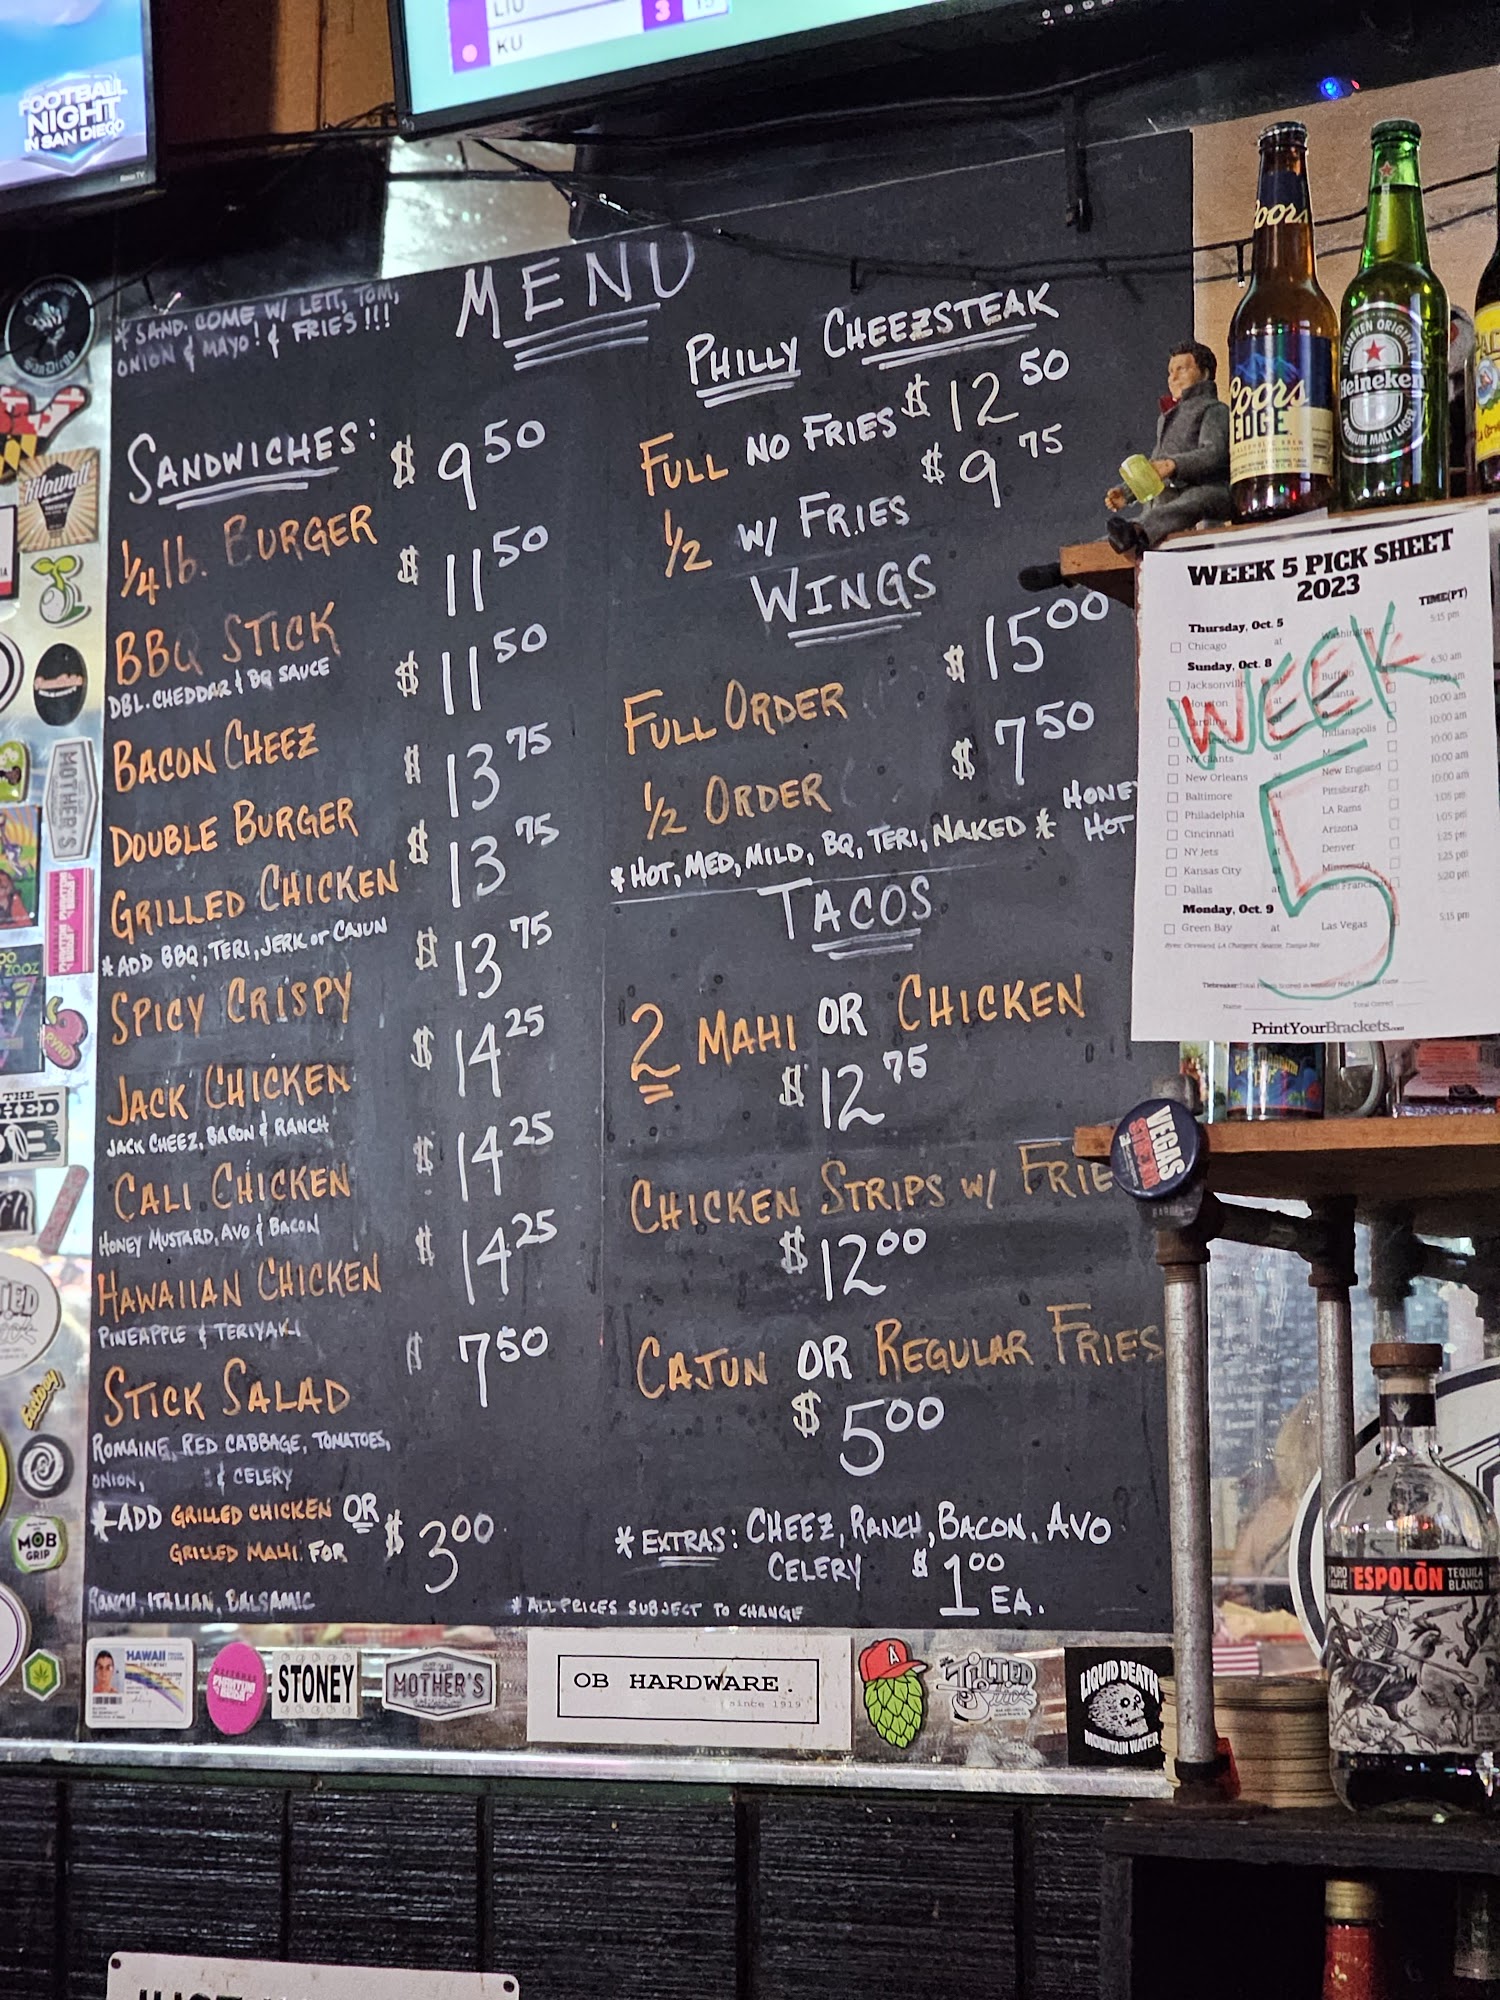 LIU 3
KU
FOOTBALL
NIGHT
IN SAN DIEGO
Roku TV
MENU
* SAND. COME W/ LETT, TOM,
ONION & MAYO! & FRIES!!!
SANDWICHES:
1/4 lb. BURGER $9.50
BBQ STICK $11.50
DBL. CHEDDAR & BQ SAUCE
BACON CHEEZ $11.50
DOUBLE BURGER $13.75
GRILLED CHICKEN $13.75
* ADD BBQ, TERI, JERK or CAJUN
SPICY CRISPY $13.75
JACK CHICKEN $14.25
JACK CHEEZ, BACON & RANCH
CALI CHICKEN $14.25
HONEY MUSTARD, AVO & BACON
HAWAIIAN CHICKEN $14.25
PINEAPPLE & TERIYAKI
STICK SALAD $7.50
ROMAINE, RED CABBAGE, TOMATOES,
ONION, & CELERY
*ADD GRILLED CHICKEN OR
GRILLED MAHI FOR $3.00
RANCH, ITALIAN, BALSAMIC
PHILLY CHEEZSTEAK
FULL NO FRIES $12.50
1/2 W/ FRIES $9.75
WINGS
FULL ORDER $15.00
1/2 ORDER $7.50
*HOT, MED, MILD, BQ, TERI, NAKED * HONE
HOT
TACOS
2 MAHI OR CHICKEN
$12.75
CHICKEN STRIPS W/ FRIE
$12.00
CAJUN OR REGULAR FRIES
$5.00
* EXTRAS: CHEEZ, RANCH, BACON, AVO
CELERY $1.00
EA.
* ALL PRICES SUBJECT TO CHANGE
Coors
Coors
EDGE
HEINEKEN ORIGINAL
Heineken
PREMIUM MALT LAGER
WEEK 5 PICK SHEET
2023
TIME(PT)
Thursday, Oct. 5
Chicago at Washington 5:15 pm
Sunday, Oct. 8
Jacksonville at Buffalo 6:30 am
Houston Atlanta 10:00 am
Carolina 10:00 am
Indianapolis 10:00 am
NY Giants at 10:00 am
New Orleans at New England 10:00 am
Baltimore at Pittsburgh 10:00 am
Philadelphia at LA Rams 1:05 pm
Cincinnati at Arizona 1:05 pm
NY Jets at Denver 1:25 pm
Kansas City at Minnesota 1:25 pm
Dallas at San Francisco 5:20 pm
Monday, Oct. 9
Green Bay at Las Vegas 5:15 pm
WEEK
5
Name Total Correct
PrintYourBrackets.com
VEGAS
Kilowatt
MOTHER'S
THE
MOB
GRIP
HAWAII
STONEY
MOTHER'S
OB HARDWARE.
since 1919
TILTED
Stick
LIQUID DEATH
MOUNTAIN WATER
PURO AGAVE
ESPOLÒN
TEQUILA
BLANCO